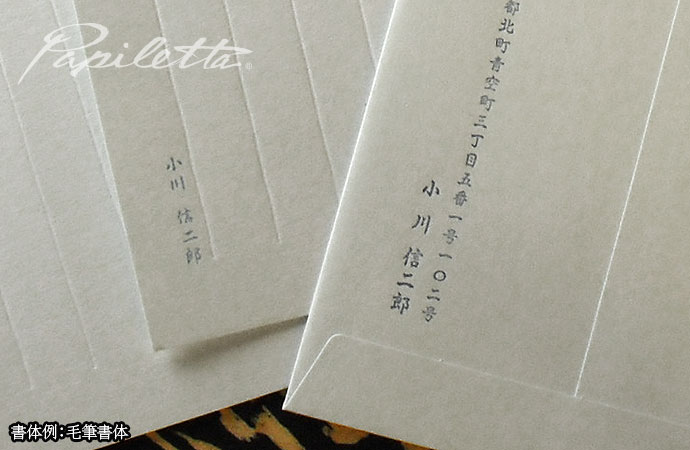 Papiletta®
小川 信二郎
都北町青空町三丁目五番一号一〇二号
小川 信二郎
書体例：毛筆書体